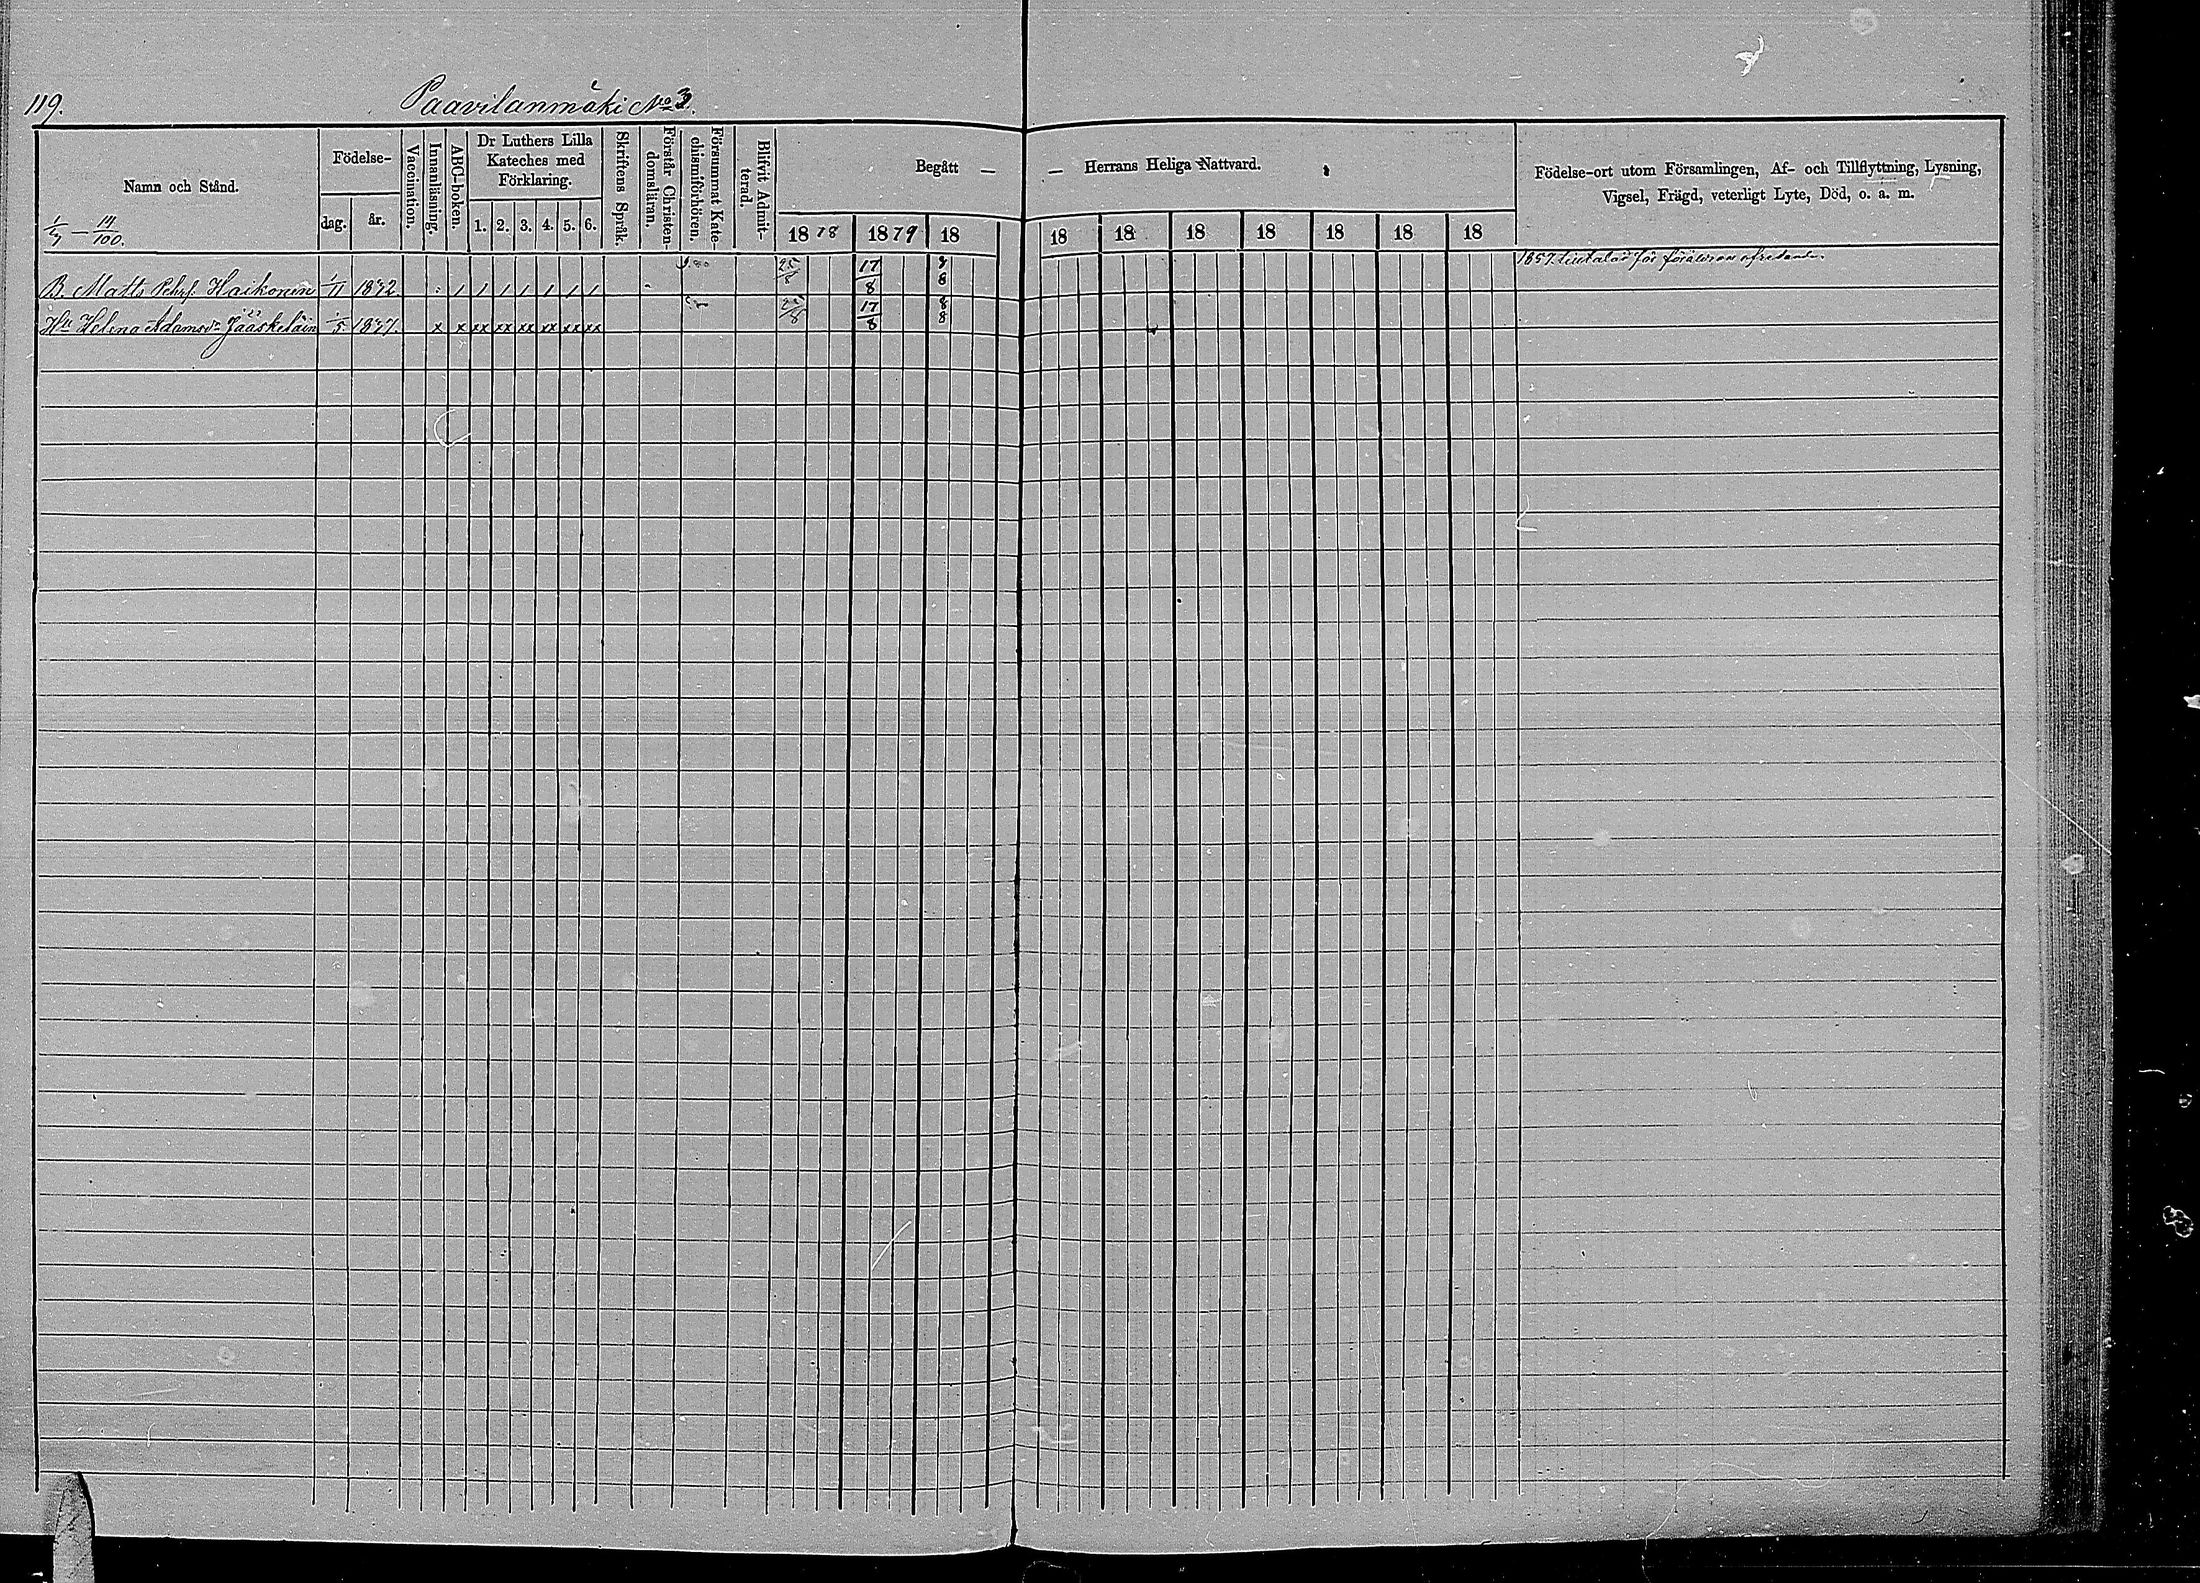 119. Paavilanmäki No 3.
Namn och Stånd.
1/7 — 14/100.
Födelse-
dag. år.
Vaccination.
Innanläsning.
ABC-boken.
Dr Luthers Lilla
Kateches med
Förklaring.
1. 2. 3. 4. 5. 6.
Skriftens Språk.
Förstår Christen-
domsläran.
Försummat Kate-
chismiförhören.
Blifvit Admit-
terad.
Begått — — Herrans Heliga Nattvard.
1878 1879 18 18 18 18 18 18 18 18
Födelse-ort utom Församlingen, Af- och Tillflyttning, Lysning,
Vigsel, Frägd, veterligt Lyte, Död, o. a. m.
B. Matts Pehrs. Haikonen 1/11 25/8 17/8 8/8 1857 för
Hu Helena Adamsdr Jääskeläin 1/5 x x xx xx xx xx xx xx 25/8 17/8 8/8